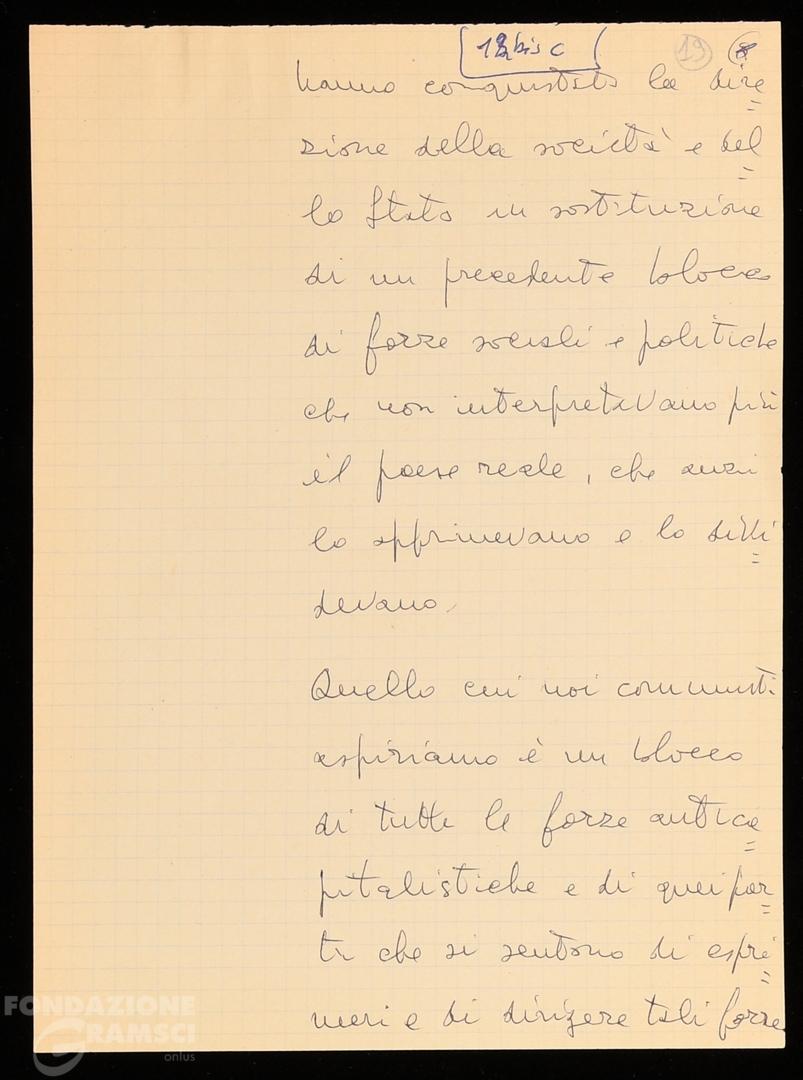 12bis c 19 8
hanno conquistato la dire=
zione della società e del=
lo Stato in sostituzione
di un precedente blocco
di forze sociali e politiche
che non interpretavano più
il paese reale, che anzi
lo opprimevano e lo divi=
devano.
Quello cui noi comunisti
aspiriamo è un blocco
di tutte le forze antica=
pitalistiche e di quei par=
ti che si sentono di espri=
meri e di dirigere tali forze
FONDAZIONE
GRAMSCI
onlus